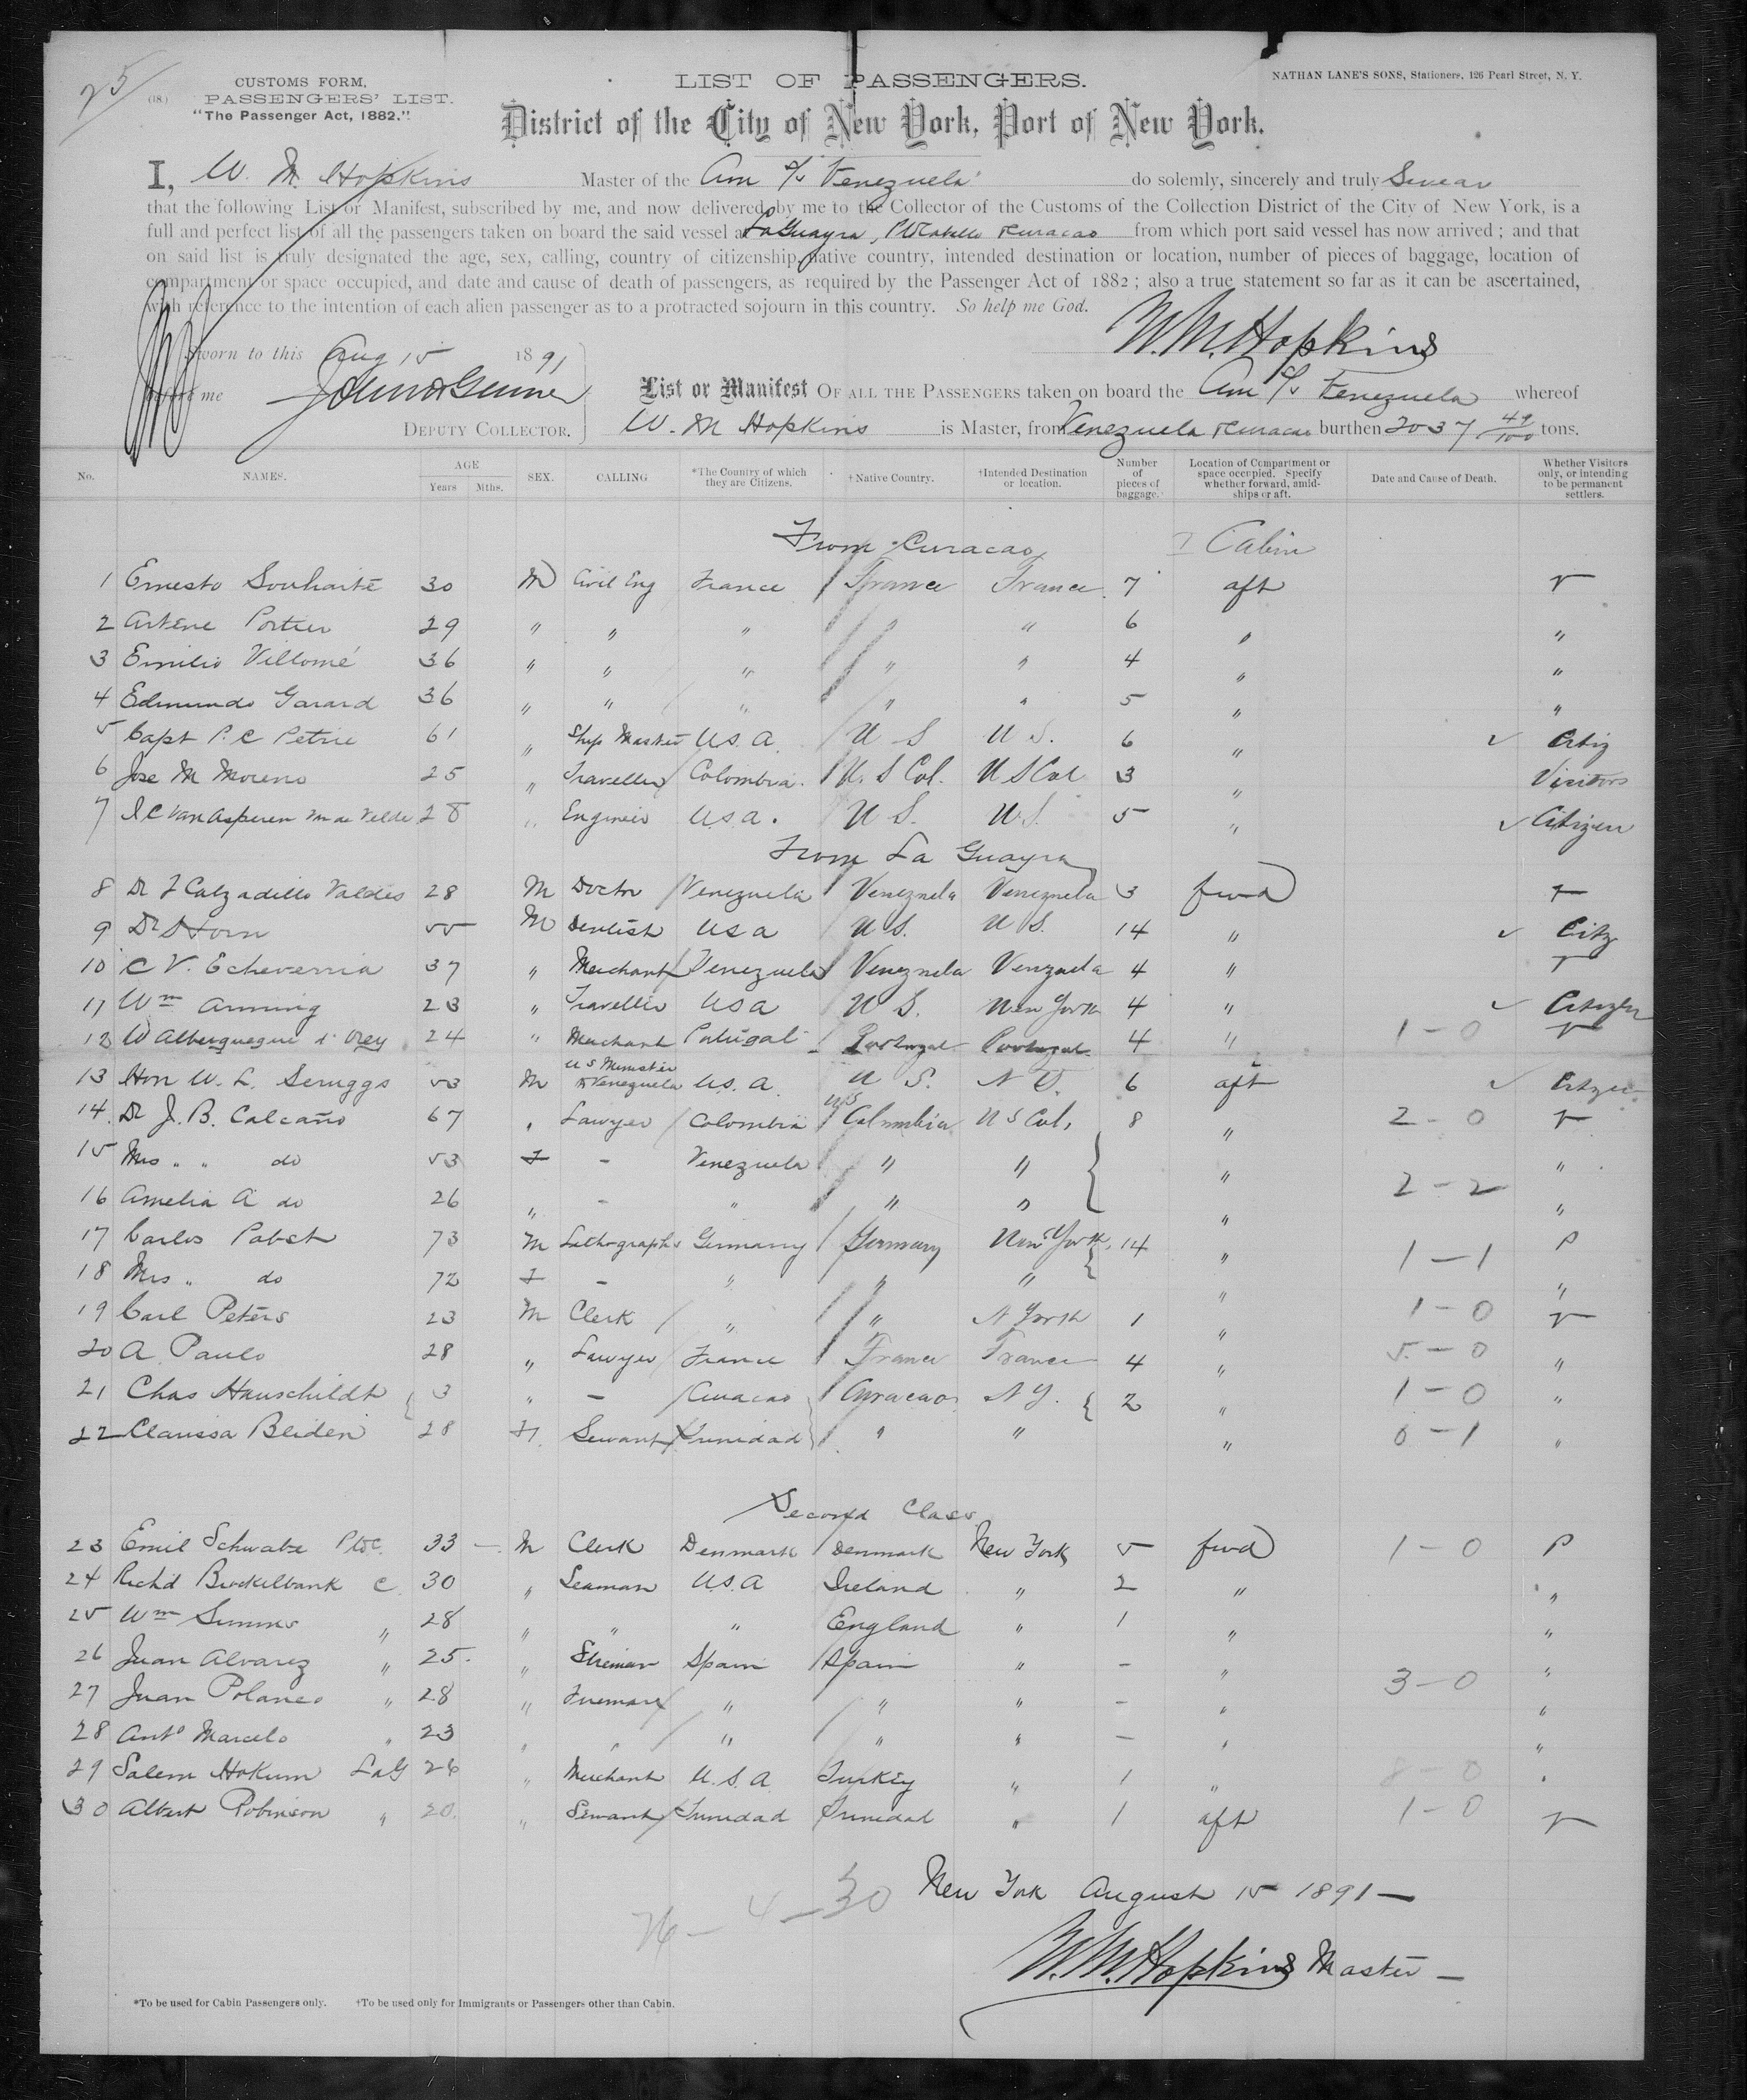 25
(18.)
CUSTOMS FORM,
PASSENGERS' LIST.
"The Passenger Act, 1882."
LIST OF PASSENGERS.
NATHAN LANE'S SONS, Stationers, 126 Pearl Street, N. Y.
District of the City of New York, Port of New York.
I, W. M. Hopkins Master of the Am S/s Venezuela do solemnly, sincerely and truly Swear
that the following List or Manifest, subscribed by me, and now delivered by me to the Collector of the Customs of the Collection District of the City of New York, is a
full and perfect list of all the passengers taken on board the said vessel at LaGuayra, PtoCabello & Curacao from which port said vessel has now arrived ; and that
on said list is truly designated the age, sex, calling, country of citizenship, native country, intended destination or location, number of pieces of baggage, location of
compartment or space occupied, and date and cause of death of passengers, as required by the Passenger Act of 1882 ; also a true statement so far as it can be ascertained,
with reference to the intention of each alien passenger as to a protracted sojourn in this country. So help me God.
W. M. Hopkins
Sworn to this Aug 15 1891
before me
DEPUTY COLLECTOR.
List or Manifest OF ALL THE PASSENGERS taken on board the Am S/s Venezuela whereof
W. M Hopkins is Master, from Venezuela & Curacao burthen 2037 49/100 tons.
No. NAMES. AGE Years Mths. SEX. CALLING *The Country of which they are Citizens. †Native Country. †Intended Destination or location. Number of pieces of baggage. Location of Compartment or space occupied. Specify whether forward, amidships or aft. Date and Cause of Death. Whether Visitors only, or intending to be permanent settlers.
From Curacao Cabin
1 Ernesto Souhaité 30 M Civil Eng France France France 7 aft v
2 Artene Portier 29 " " " " " 6 " "
3 Emilio Villomé 36 " " " " " 4 " "
4 Edmundo Garard 36 " " " " " 5 " "
5 Capt P. C Petrie 61 " Ship Master U.S.A. U S U S. 6 " ✓ Citiz
6 Jose M Moreno 25 " Traveller Colombia. U. S Col. U S Col 3 " Visitors
7 I C Van Asperen V de Velde 28 " Engineer U.S.A. U S. U.S. 5 " ✓ Citizen
From La Guayra
8 Dr F Calzadillo Valdes 28 M Doctor Venezuela Venezuela Venezuela 3 fwd v
9 Dr Horn 55 M Dentist USA U S. U S. 14 " ✓ Citz
10 C V. Echeverria 37 " Merchant Venezuela Venezuela Venezuela 4 " v
11 Wm Arming 23 " Traveller USA U S. New York 4 " ✓ Citizen
12 W Alberguegue d' Orey 24 " Merchant Portugal Portugal Portugal 4 " 1 - 0 v
13 Hon W. L. Scruggs 53 M U S Minister to Venezuela U.S.A. U S. N Y. 6 aft ✓ Citizen
14. Dr J. B. Calcaño 67 " Lawyer Colombia US Columbia U S Col, 8 " 2 - 0 v
15 Mrs " " do 53 F - Venezuela " " " "
16 Amelia A do 26 " - " " " " 2 - 2 "
17 Carlos Pabst 73 M Lithograph Germany Germany New York, 14 " P
18 Mrs " do 72 F - " " " " 1 - 1 "
19 Carl Peters 23 M Clerk " " N York 1 " 1 - 0 v
20 A Paulo 28 " Lawyer France France France 4 " 5 - 0 "
21 Chas Hauschildt 3 " - Curacao Curacao N Y. 2 " 1 - 0 "
22 Clarissa Beiden 28 F. Servant Trinidad " " " 0 - 1 "
Second Class
23 Emil Schwabe PtoC. 33 M Clerk Denmark Denmark New York 5 fwd 1 - 0 P
24 Richd Brockelbank C 30 " Seaman U.S.A Ireland " 2 " "
25 Wm Simms " 28 " " " England " 1 " "
26 Juan Alvarez " 25. " Fireman Spain Spain " - " "
27 Juan Polanco " 28 " Fireman " " " - " 3 - 0 "
28 Anto Marcelo " 23 " " " " " - " "
29 Salem Hokum LaG 26 " Merchant U.S.A Turkey " 1 " 8 - 0 "
30 Albert Robinson " 20. " Servant Trinidad Trinidad " 1 aft 1 - 0 v
26 - 4 - 30
New York August 15 1891 -
W. M. Hopkins Master -
*To be used for Cabin Passengers only. †To be used only for Immigrants or Passengers other than Cabin.